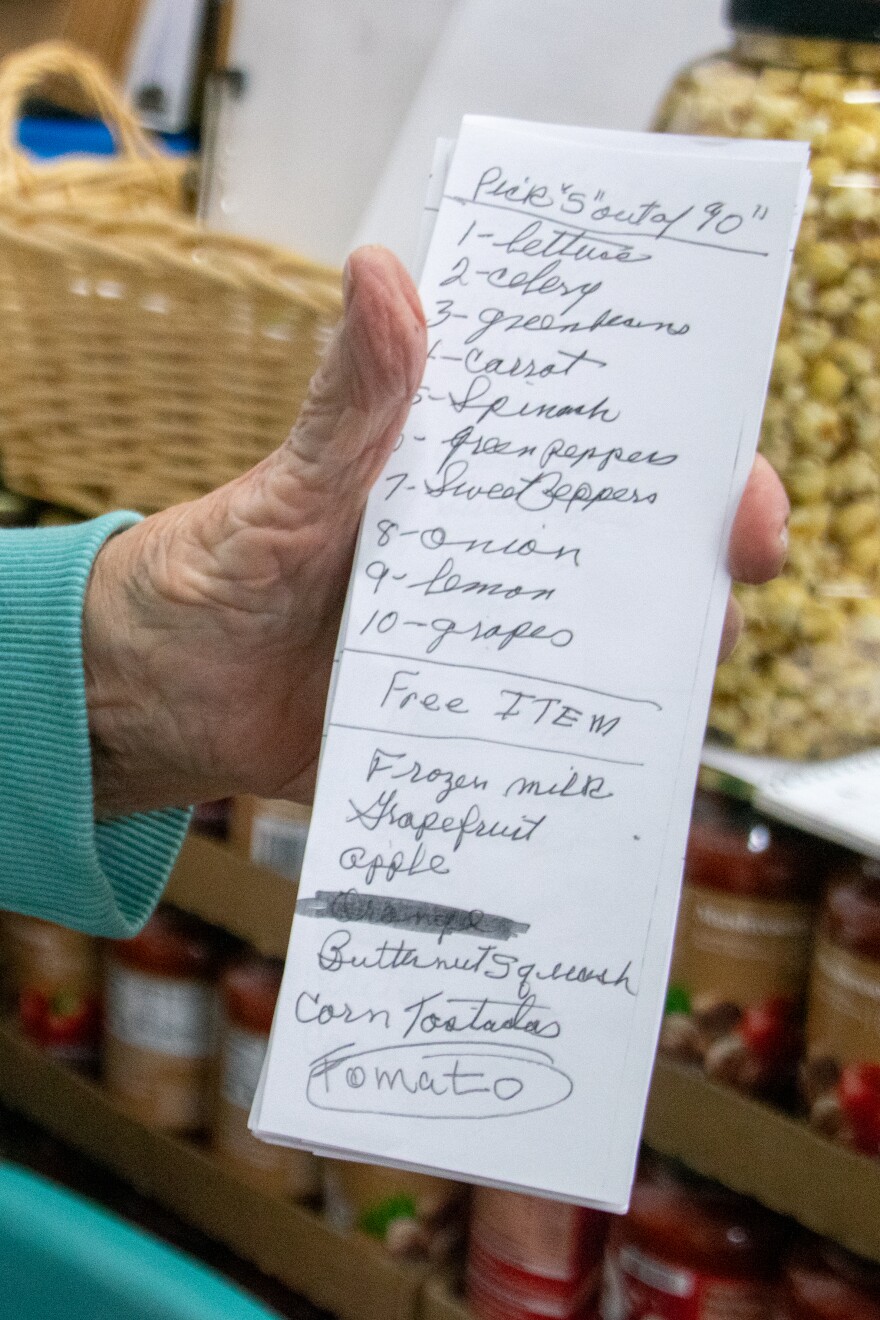 Pick "5" out of "90"
1-lettuce
2-celery
3-greenbeans
4-Carrot
5-Spinash
6-green peppers
7-Sweet Peppers
8-onion
9-lemon
10-grapes
Free ITEM
Frozen milk
Grapefruit
apple
Orange
Butternut Squash
Corn Tostadas
Tomato